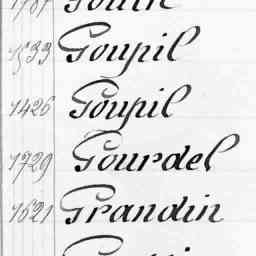 1533 Goupil
1426 Goupil
1729 Gourdel
1621 Grandin